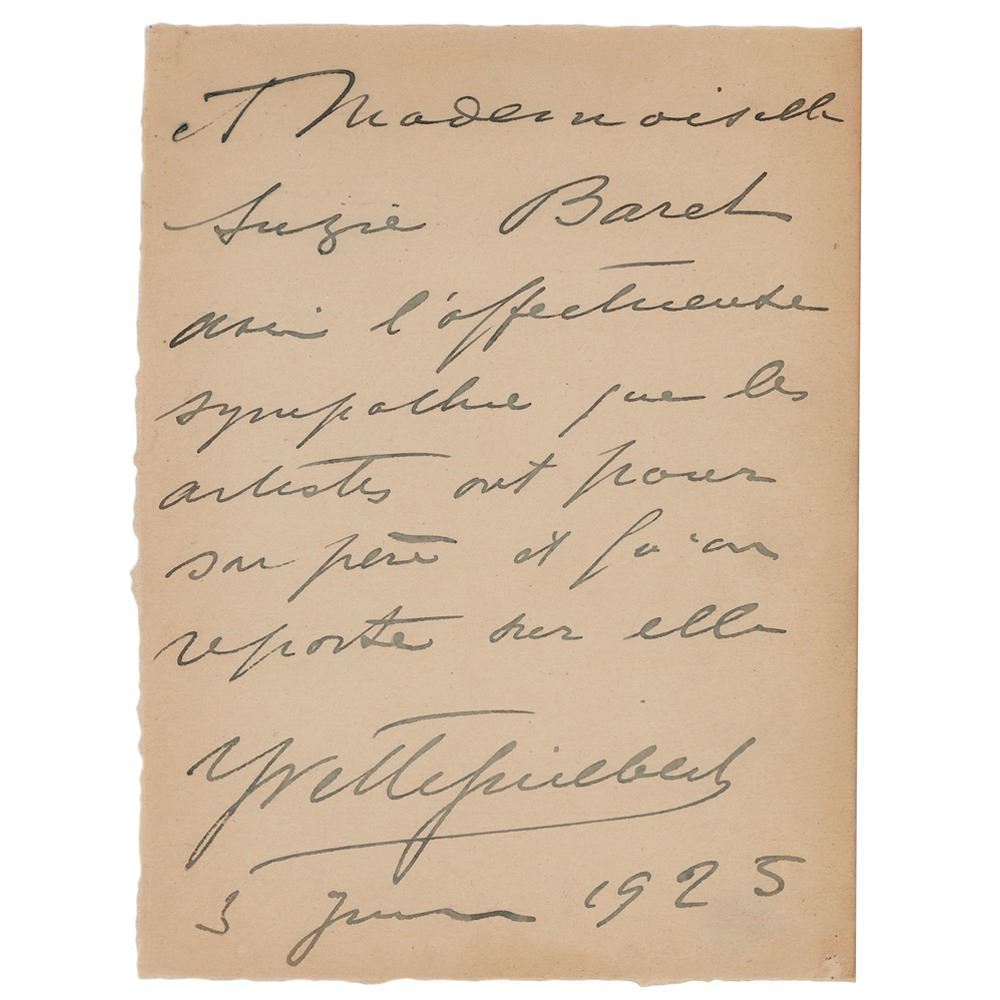 A Mademoiselle
Suzie Baret
avec l'affectueuse
sympathie que les
artistes ont pour
son père et qu'on
reporte sur elle
Yvette Guilbert
5 Juin 1925